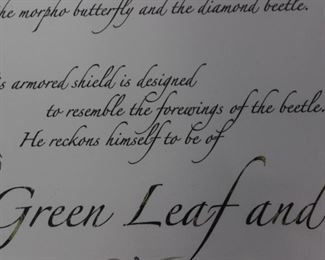 he morpho butterfly and the diamond beetle.
s armored shield is designed
to resemble the forewings of the beetle.
He reckons himself to be of
Green Leaf and